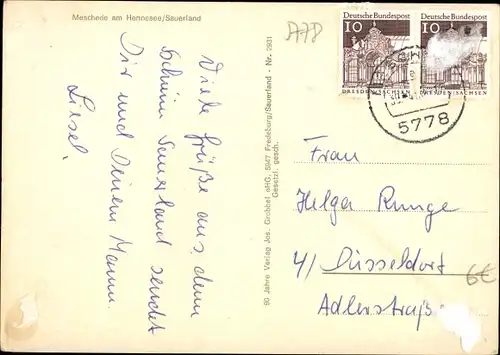 Meschede am Hennesee/Sauerland
Viele Grüße aus dem
Sauerland sendet
Dir und Deinem Mann
Liesel.
90 Jahre Verlag Jos. Grobbel oHG, 5947 Fredeburg/Sauerland - Nr. 2931
Gesetzl. gesch.
A78
Deutsche Bundespost
10
DRESDEN/SACHSEN
Deutsche Bundespost
10
DRESDEN/SACHSEN
5778
Frau
Helga Runge
4/ Düsseldorf
6€